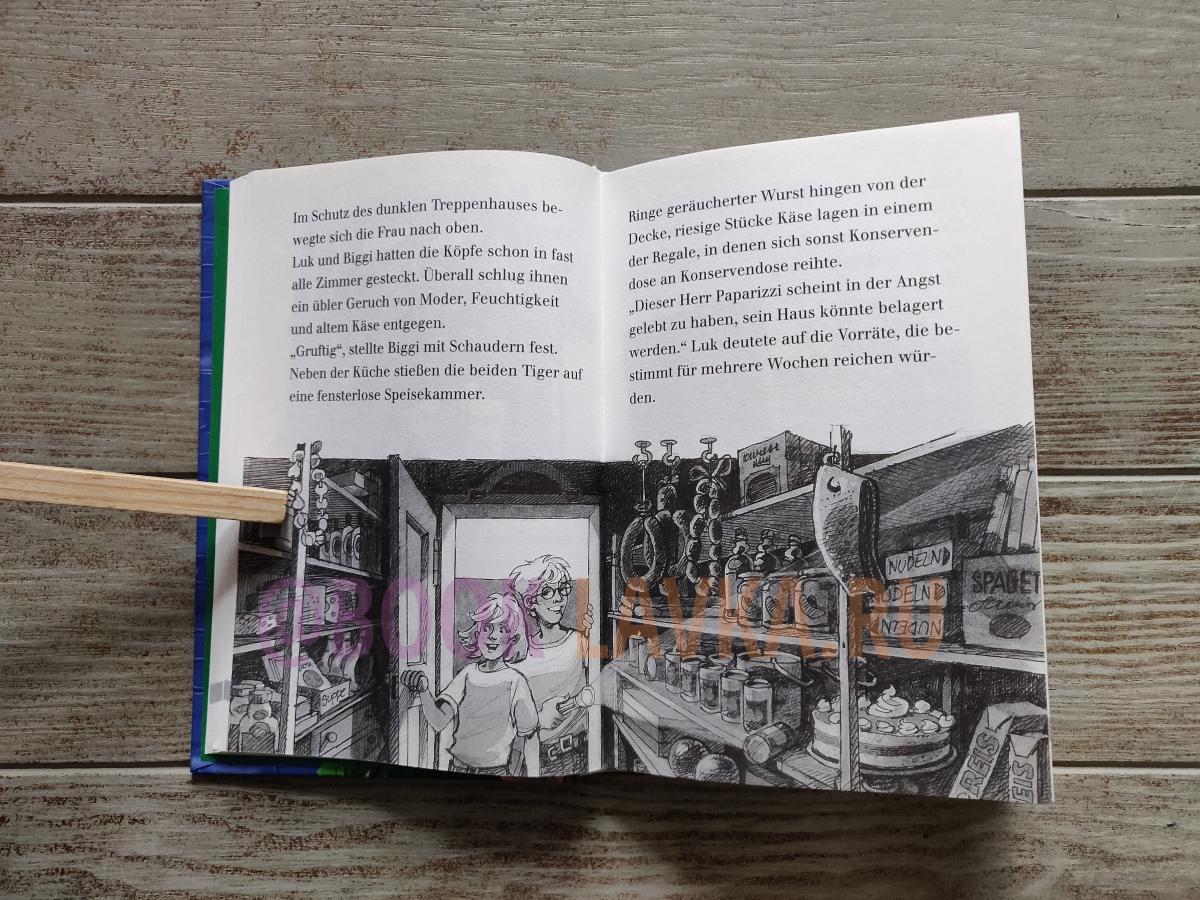 Im Schutz des dunklen Treppenhauses be-
wegte sich die Frau nach oben.
Luk und Biggi hatten die Köpfe schon in fast
alle Zimmer gesteckt. Überall schlug ihnen
ein übler Geruch von Moder, Feuchtigkeit
und altem Käse entgegen.
„Gruftig“, stellte Biggi mit Schaudern fest.
Neben der Küche stießen die beiden Tiger auf
eine fensterlose Speisekammer.
Ringe geräucherter Wurst hingen von der
Decke, riesige Stücke Käse lagen in einem
der Regale, in denen sich sonst Konserven-
dose an Konservendose reihte.
„Dieser Herr Paparizzi scheint in der Angst
gelebt zu haben, sein Haus könnte belagert
werden.“ Luk deutete auf die Vorräte, die be-
stimmt für mehrere Wochen reichen wür-
den.
NUDELND
NUDELND
NUDELND
SPAGET
SUPPE
REIS
EIS
@BOOK LAVKA.RU